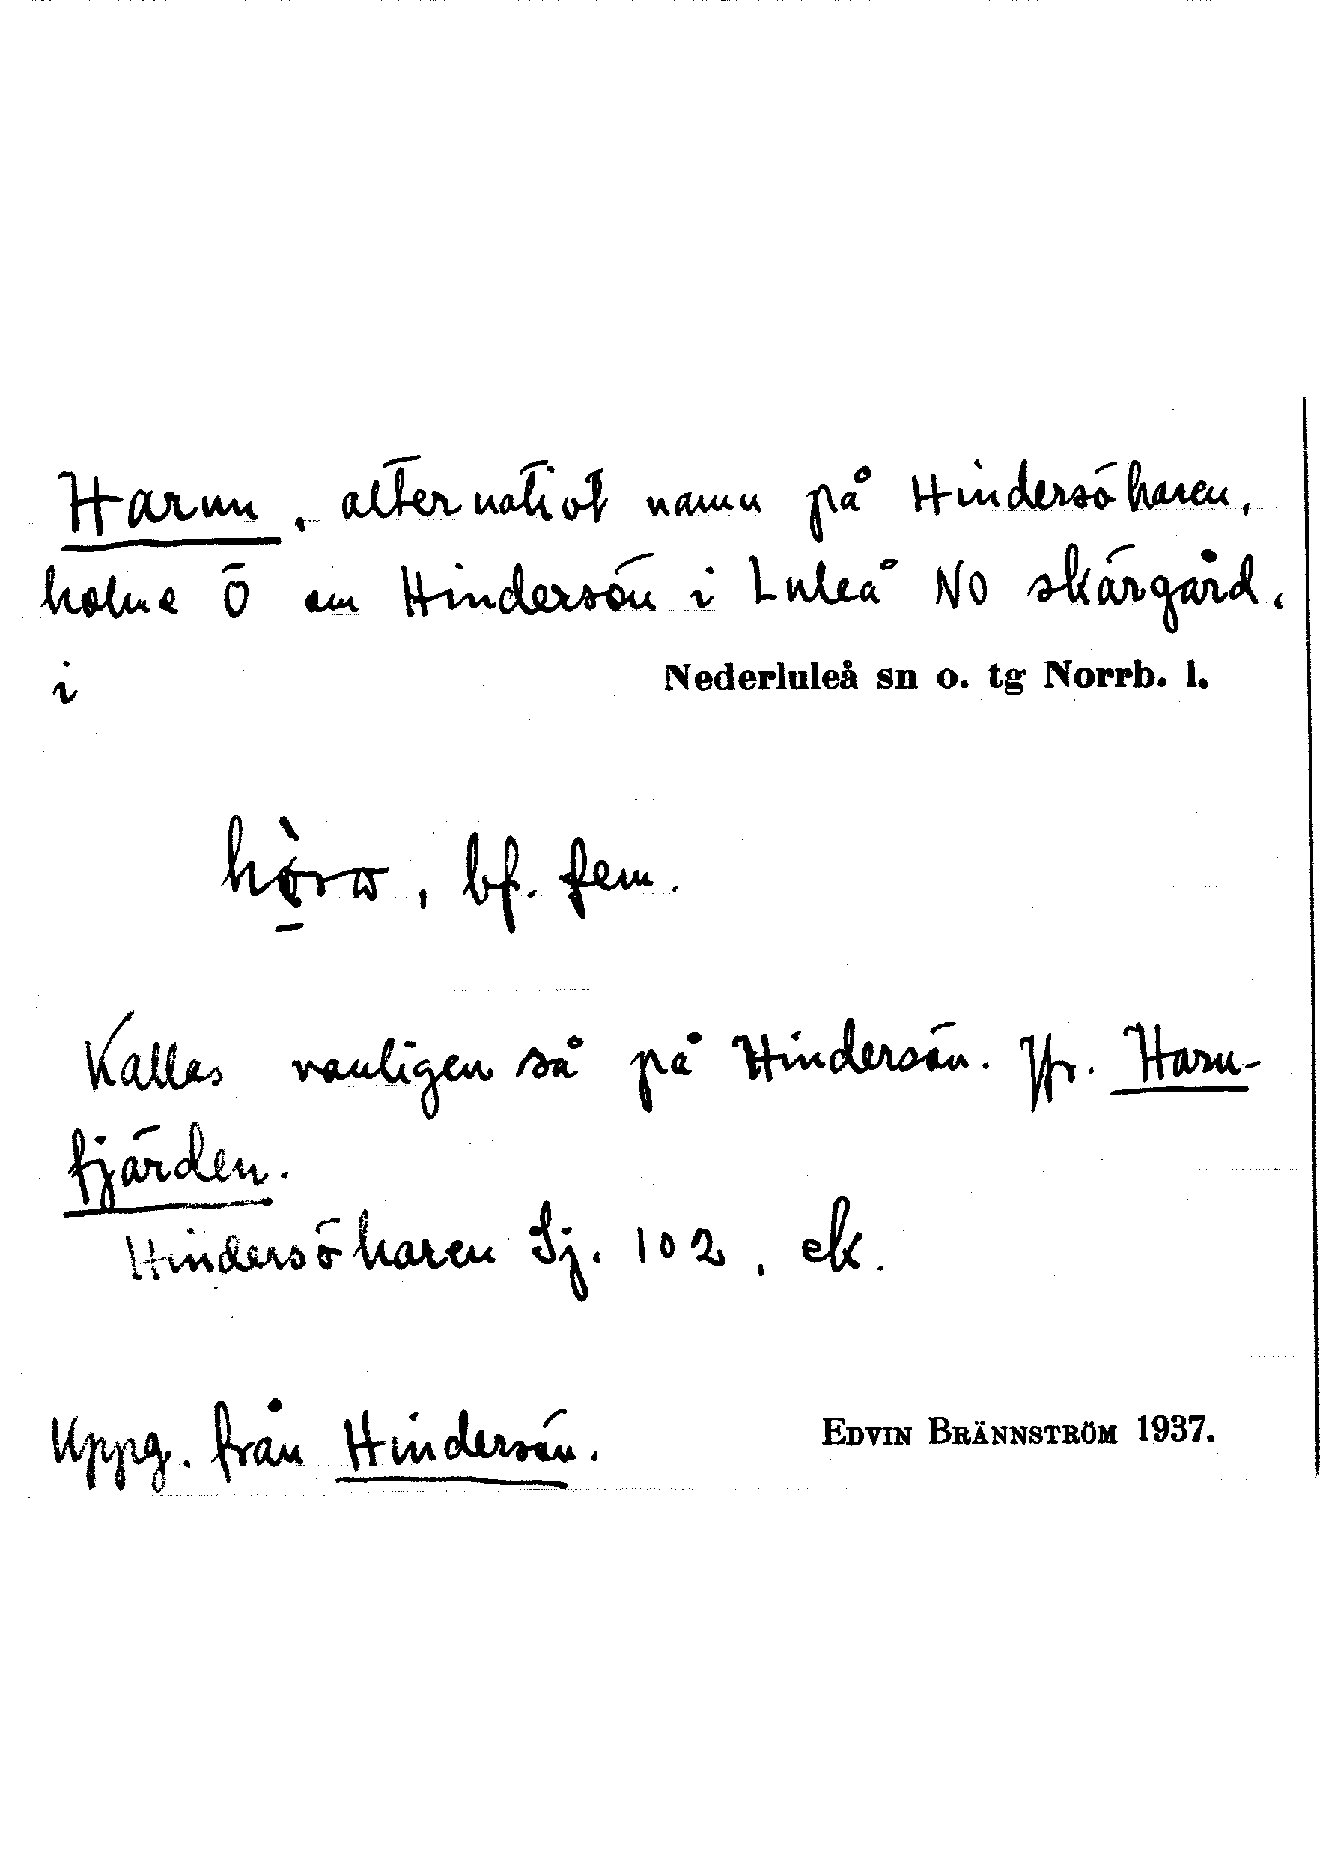 Harun, alternativt namn på Hindersöharen,
holme Ö om Hindersön i Luleå NO skärgård.
i Nederluleå sn o. tg Norrb. l.
, bf. fem.
Kallas vanligen så på Hindersön. Jfr. Haru-
fjärden.
Hindersöharen Sj. 102, ek.
Uppg. från Hindersön. EDVIN BRÄNNSTRÖM 1937.